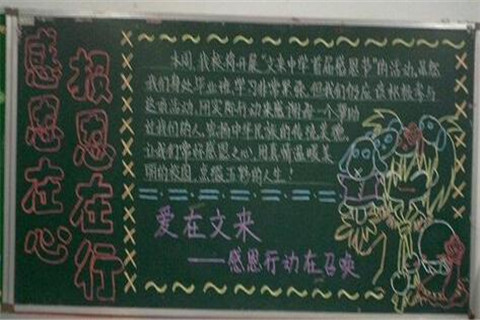 感恩在心
报恩在行
本周,我校将开展“文来中学首届感恩节”的活动。虽然
我们身处毕业班,学习非常紧张,但我们仍应该积极参与
这项活动,用实际行动来感谢每一个帮助
过我们的人,弘扬中华民族的传统美德,
让我们常怀感恩之心,用真情温暖美
丽的校园,点缀五彩的人生!
爱在文来
——感恩行动在召唤